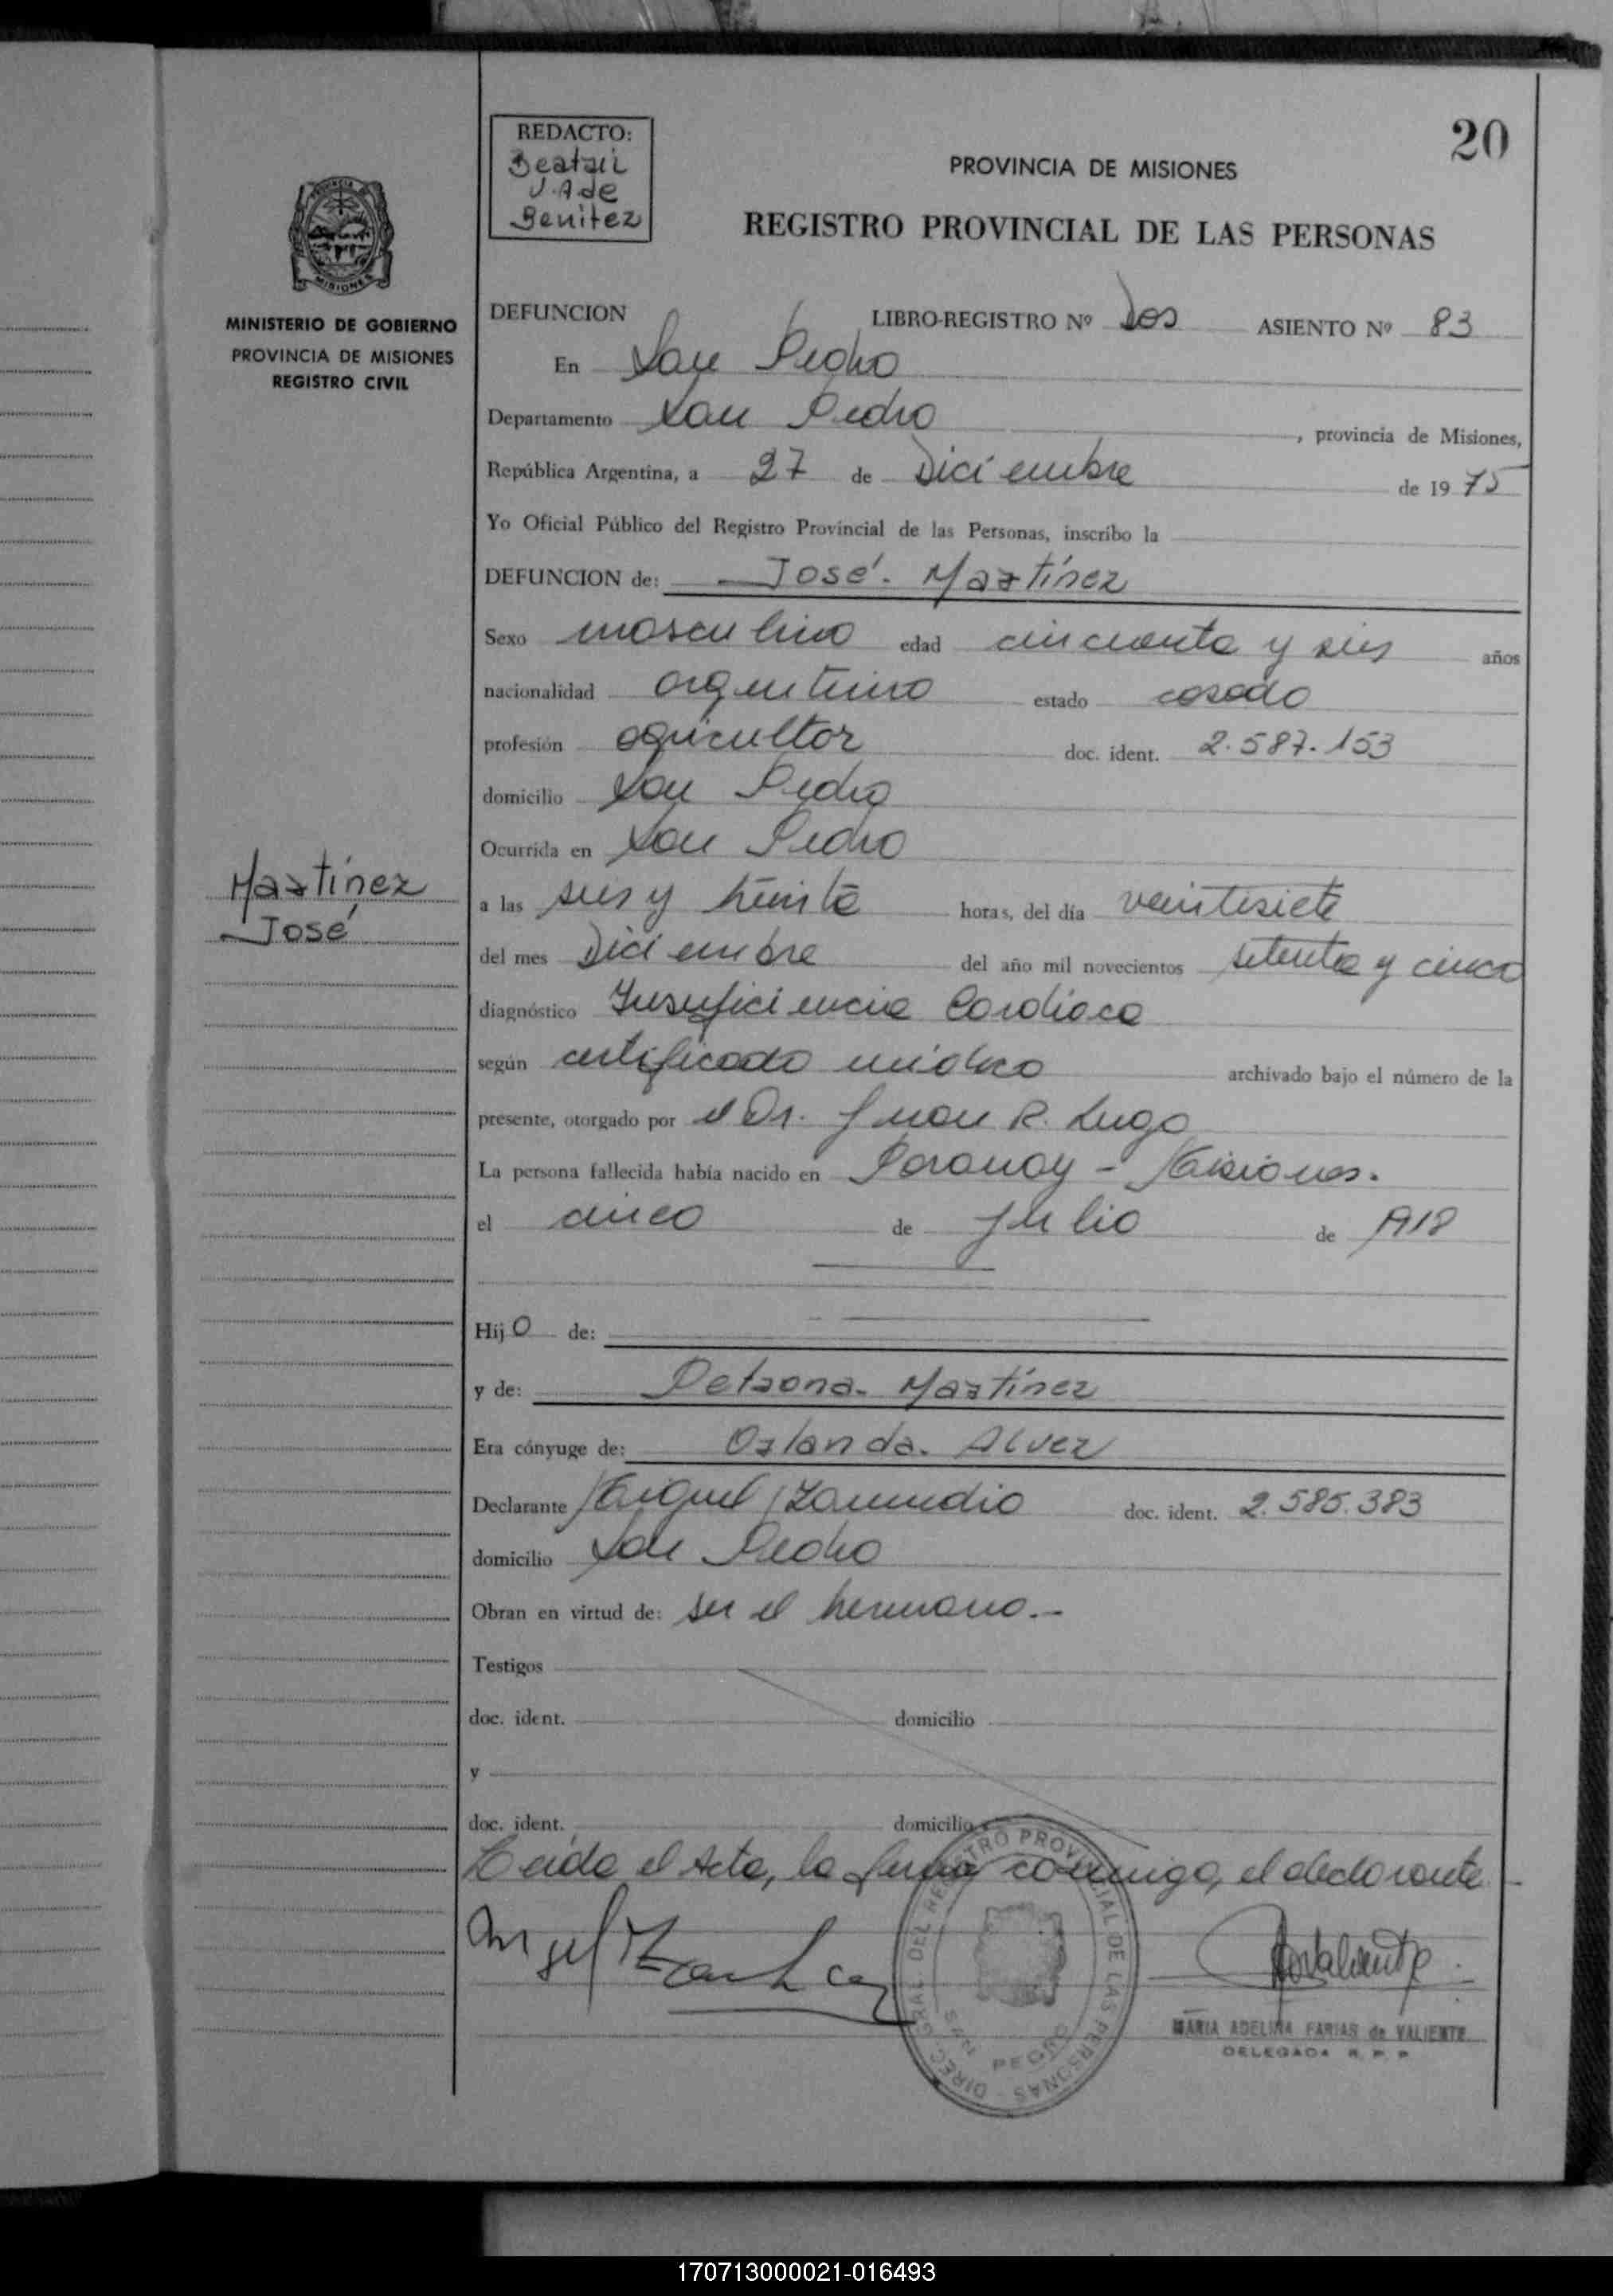 20
REDACTO:
Beatriz
V. A de
Benitez
PROVINCIA DE MISIONES
REGISTRO PROVINCIAL DE LAS PERSONAS
MISIONES
MINISTERIO DE GOBIERNO
PROVINCIA DE MISIONES
REGISTRO CIVIL
DEFUNCION LIBRO-REGISTRO Nº Dos ASIENTO Nº 83
En San Pedro
Departamento San Pedro, provincia de Misiones,
República Argentina, a 27 de Diciembre de 1975
Yo Oficial Público del Registro Provincial de las Personas, inscribo la
DEFUNCION de: José. Martínez
Sexo masculino edad cincuenta y seis años
nacionalidad argentino estado casado
profesión agricultor doc. ident. 2.587.153
domicilio San Pedro
Ocurrida en San Pedro
Martínez
José
a las seis y treinta horas, del día veintisiete
del mes Diciembre del año mil novecientos setenta y cinco
diagnóstico Insuficiencia Cardíaca
según certificado médico archivado bajo el número de la
presente, otorgado por el Dr. Juan R. Lugo
La persona fallecida había nacido en Paranay - Misiones.
el cinco de Julio de 1918
Hijo de:
y de: Petrona. Martínez
Era cónyuge de: Orlanda. Alvez
Declarante Miguel Zamudio doc. ident. 2.585.383
domicilio San Pedro
Obran en virtud de: ser el hermano.-
Testigos
doc. ident. domicilio
y
doc. ident. domicilio
Leída el Acta, la firma conmigo, el declarante.-
DIREC. GRAL. DEL REGISTRO PROVINCIAL DE LAS PERSONAS
SAN PEDRO
MARIA ADELINA FARIAS de VALIENTE
DELEGADA R. P. P.
170713000021-016493